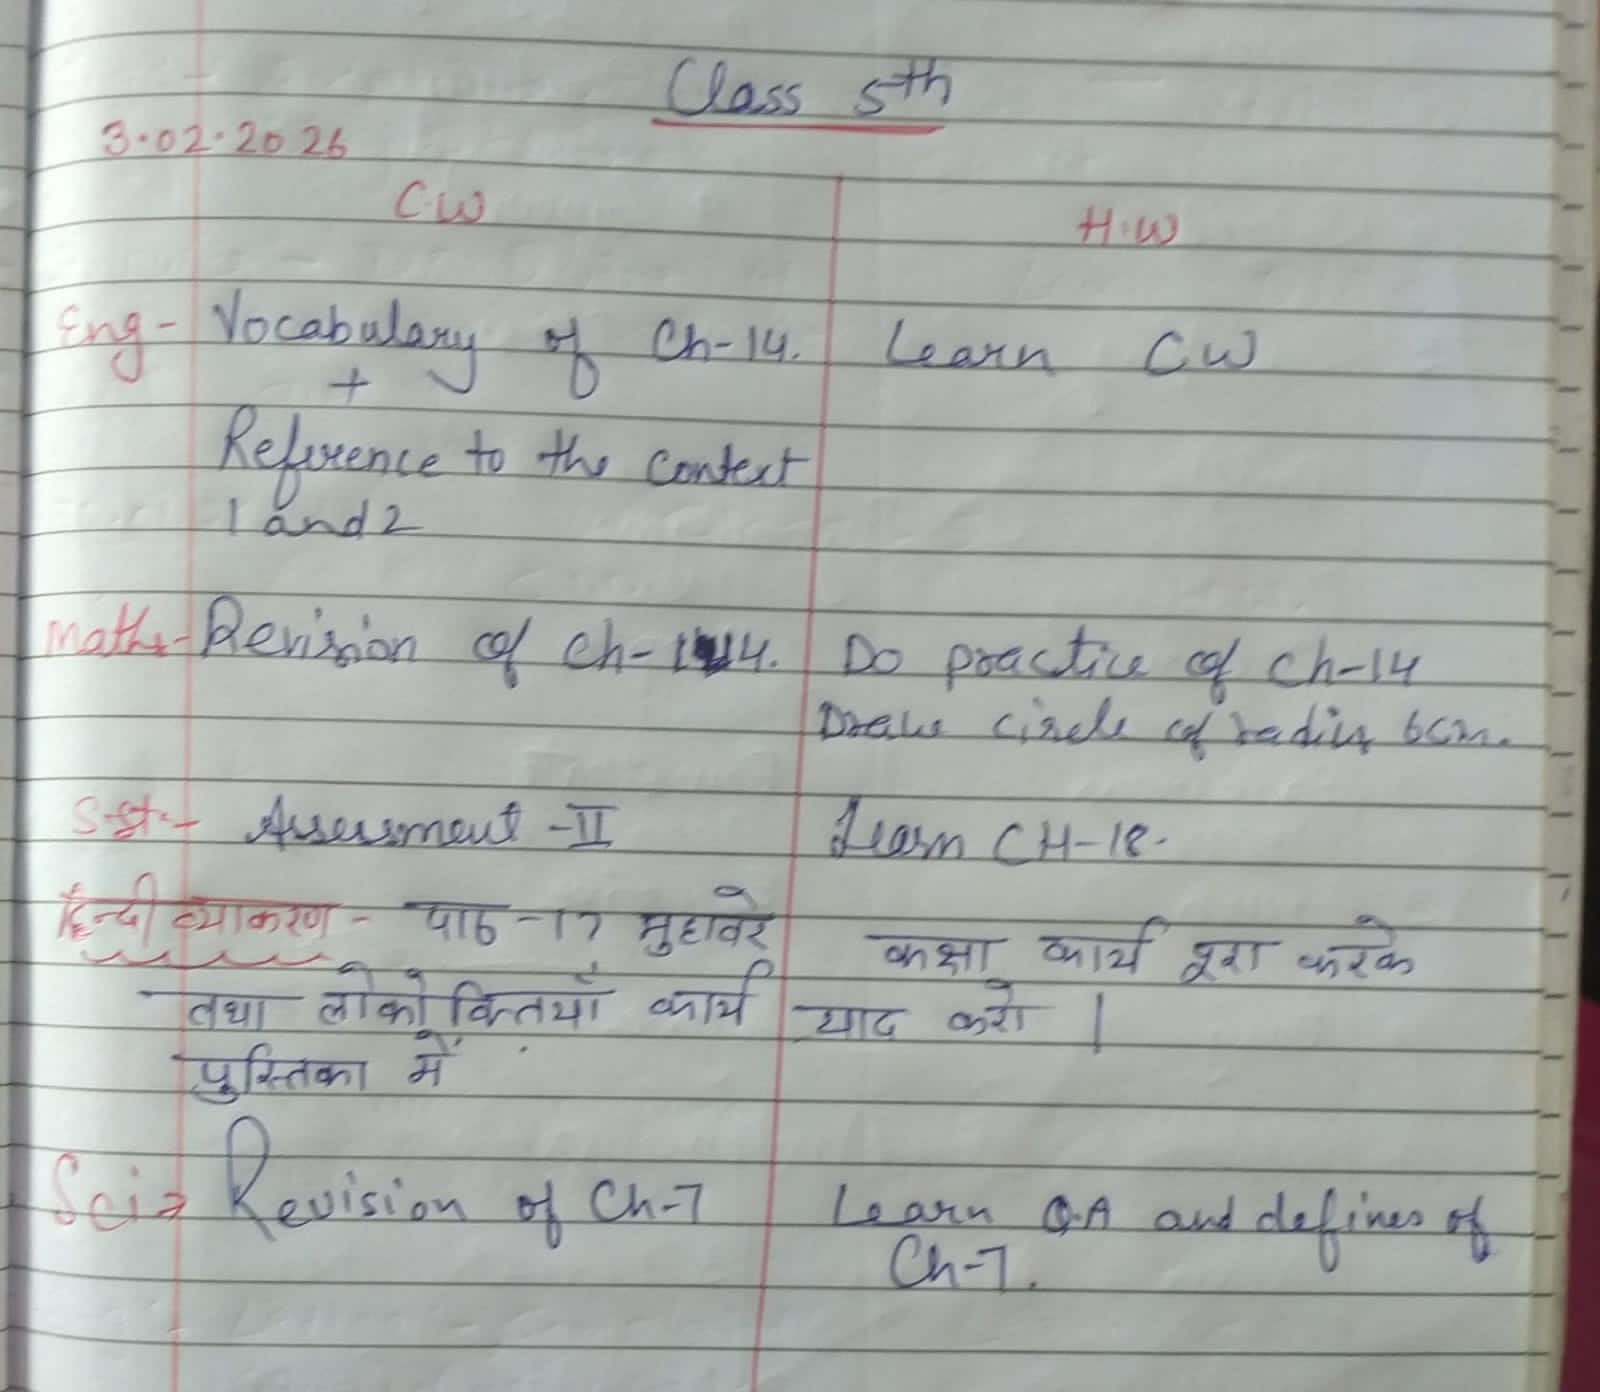 Class 5th
3.02.2026
C.W
H.W
Eng- Vocabulary of Ch-14. Learn CW
+
Reference to the context
1 and 2
Maths- Revision of Ch-14. Do practice of Ch-14
Draw circle of radius 6cm.
S.st- Assessment -II Learn CH-18.
हिन्दी व्याकरण - पाठ -17 मुहावरे कक्षा कार्य पूरा करके
तथा लोकोक्तियाँ कार्य याद करो |
पुस्तिका में
Sci→ Revision of Ch-7 Learn Q.A and defines of
Ch-7.